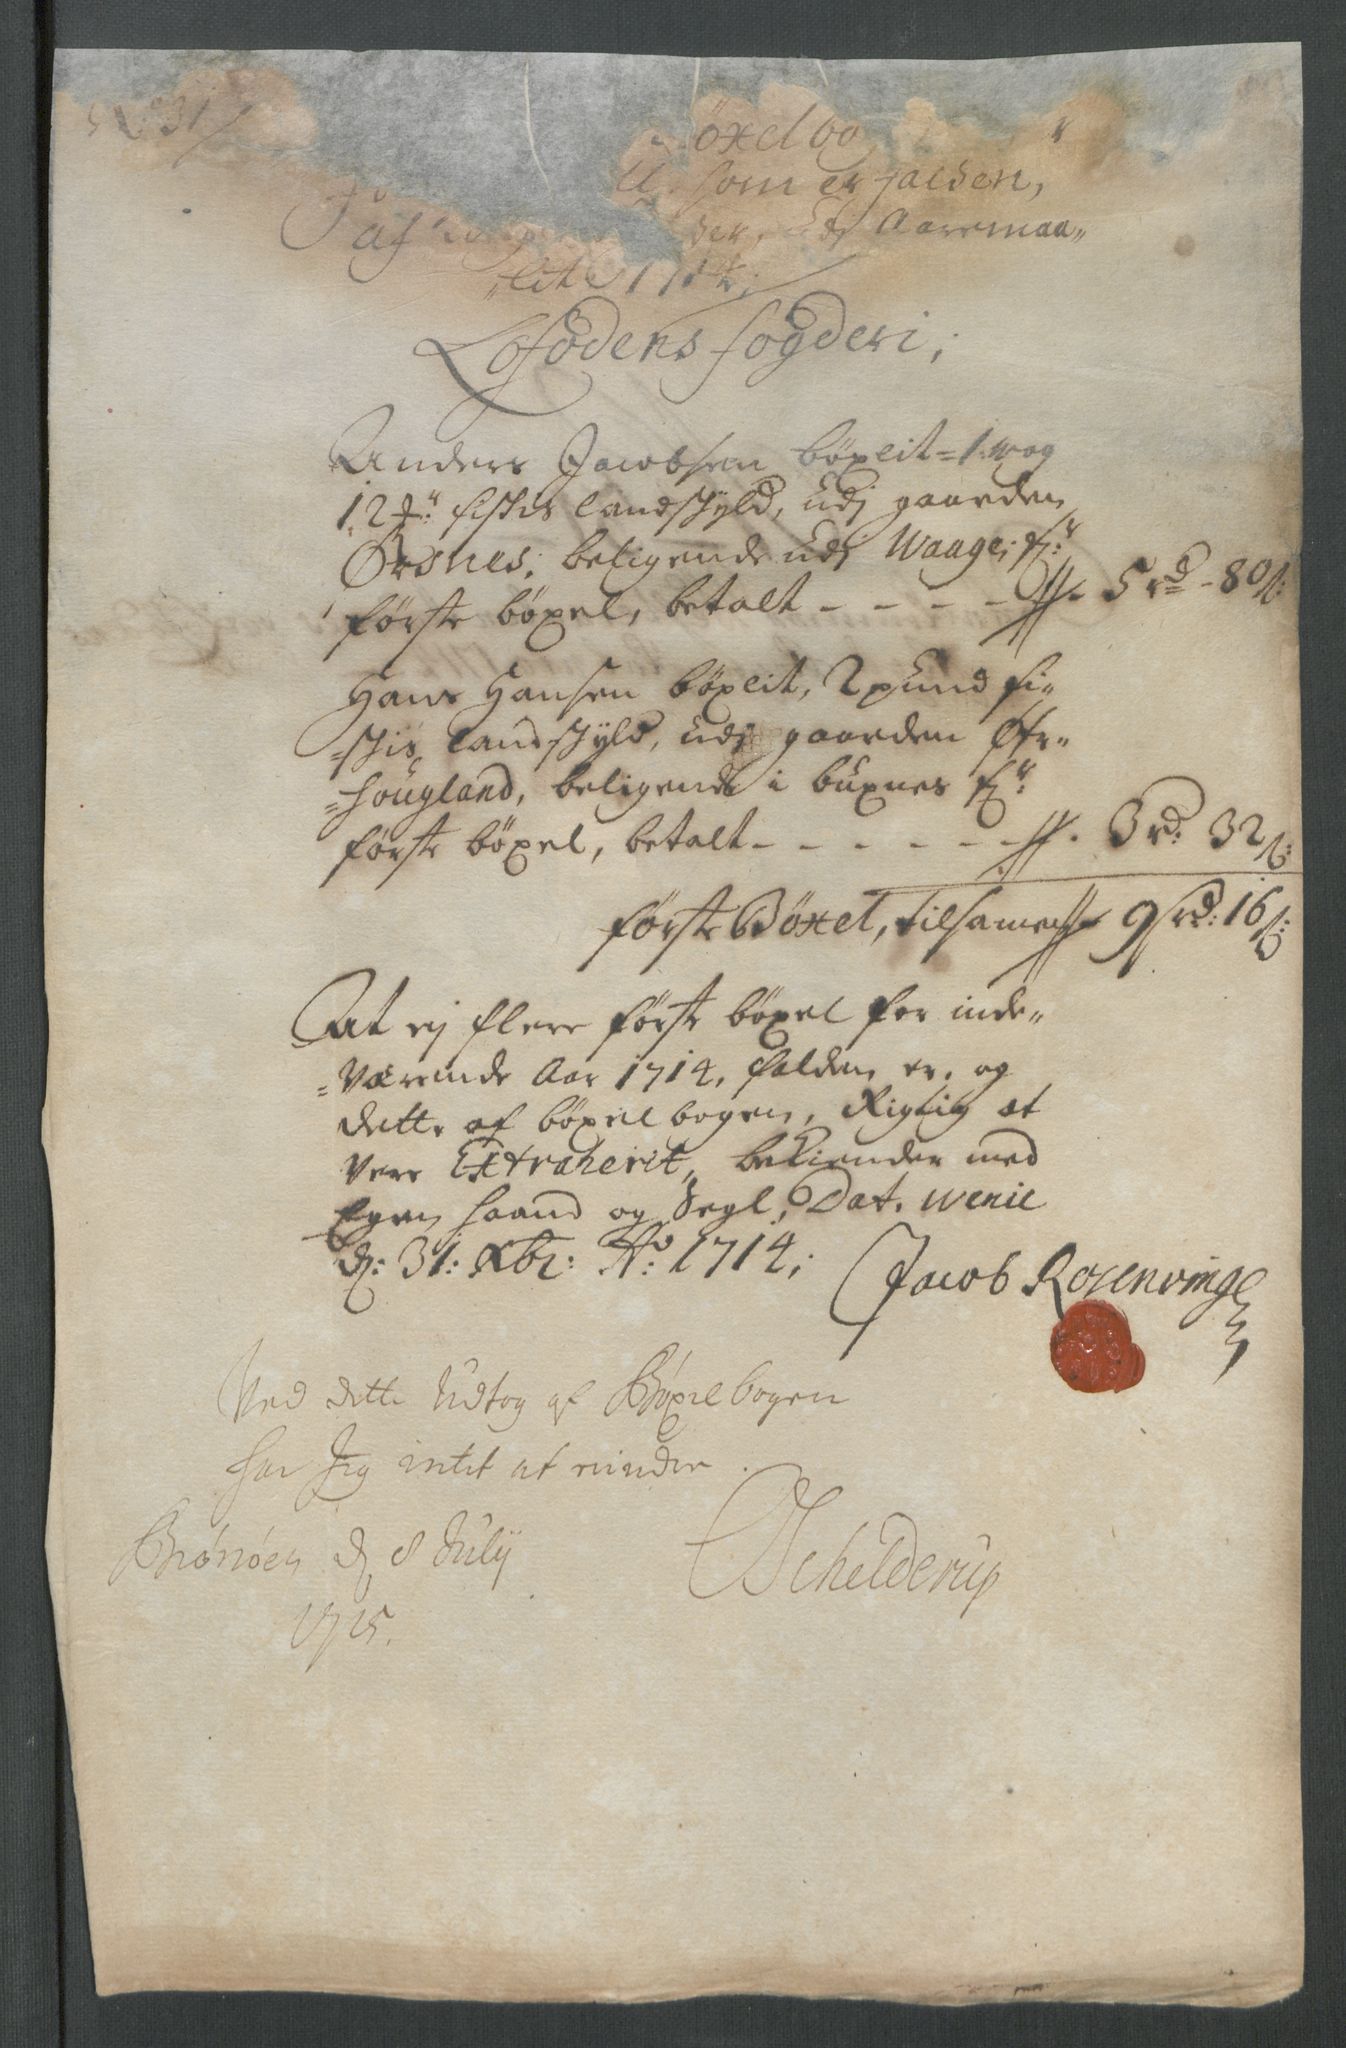 No 31
öxelbo
som er falden,
udj Aaremaa„
„lit 1714,
Lofodens fogderi;
Anders Jacobsen böxlit = 1. wog
12 ℔r fiskis landskÿld, udj gaarden
Ørsnes, beligende udj Waage fr
förste böxel, betalt - - - - - 5 rd - 80 s:
Hans Hansen böxlit, 2 pund fi=
=skis landskÿld, udj gaarden Øfr=
=hougland, beligende i buxnes fr
förste böxel, betalt - - - - - - 3 rd. 32 s:
förste Böxel, tilsamen 9 rd: 16 s:
At ej flere förste böxel for inde„
=Værende Aar 1714, falden er, og
dette af böxelbogen, Rigtig at
Vere Extraherit, bekiender med
Egen haand og Segl, Dat. Wenie
d: 31: Xbr: Ao: 1714;
Jacob Rosenving
Ved dette Udtog af Böxelbogen
har Jeg intet at mindre.
Brönöen d. 8 Julÿ
1715.
Schielderup